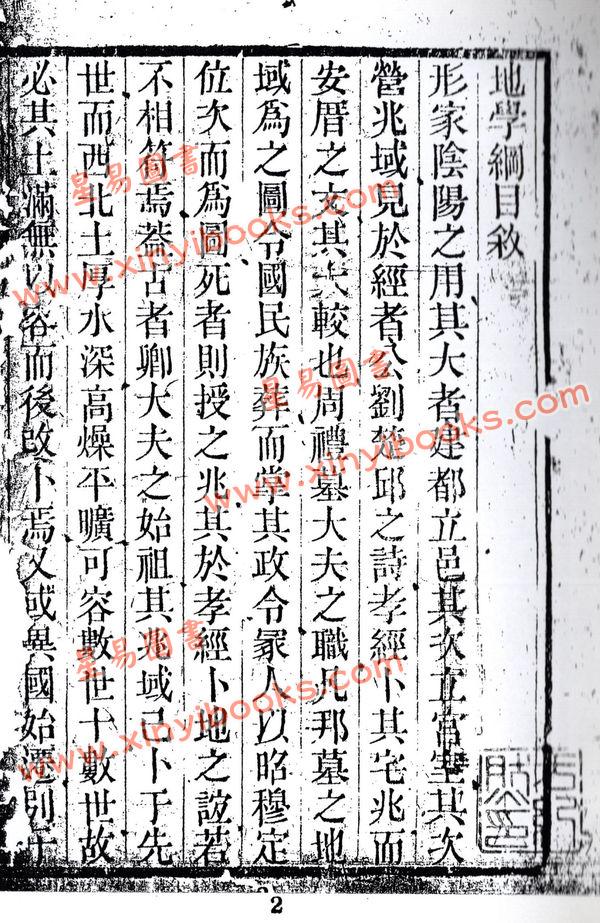 地學綱目敘
形家陰陽之用其大者建都立邑其次立宮室其次
營兆域見於經者公劉楚邱之詩孝經卜其宅兆而
安厝之文其大較也周禮墓大夫之職凡邦墓之地
域爲之圖令國民族葬而掌其政令冢人以昭穆定
位次而爲圖死者則授之兆其於孝經卜地之誼若
不相符焉葢古者卿大夫之始祖其兆域已卜于先
世而西北土厚水深高燥平曠可容數世十數世故
必其土滿無以容而後改卜焉又或異國始遷別于
星易圖書
www.xinyibooks.com
星易圖書
www.xinyibooks.com
星易圖書
www.xinyibooks.com
2